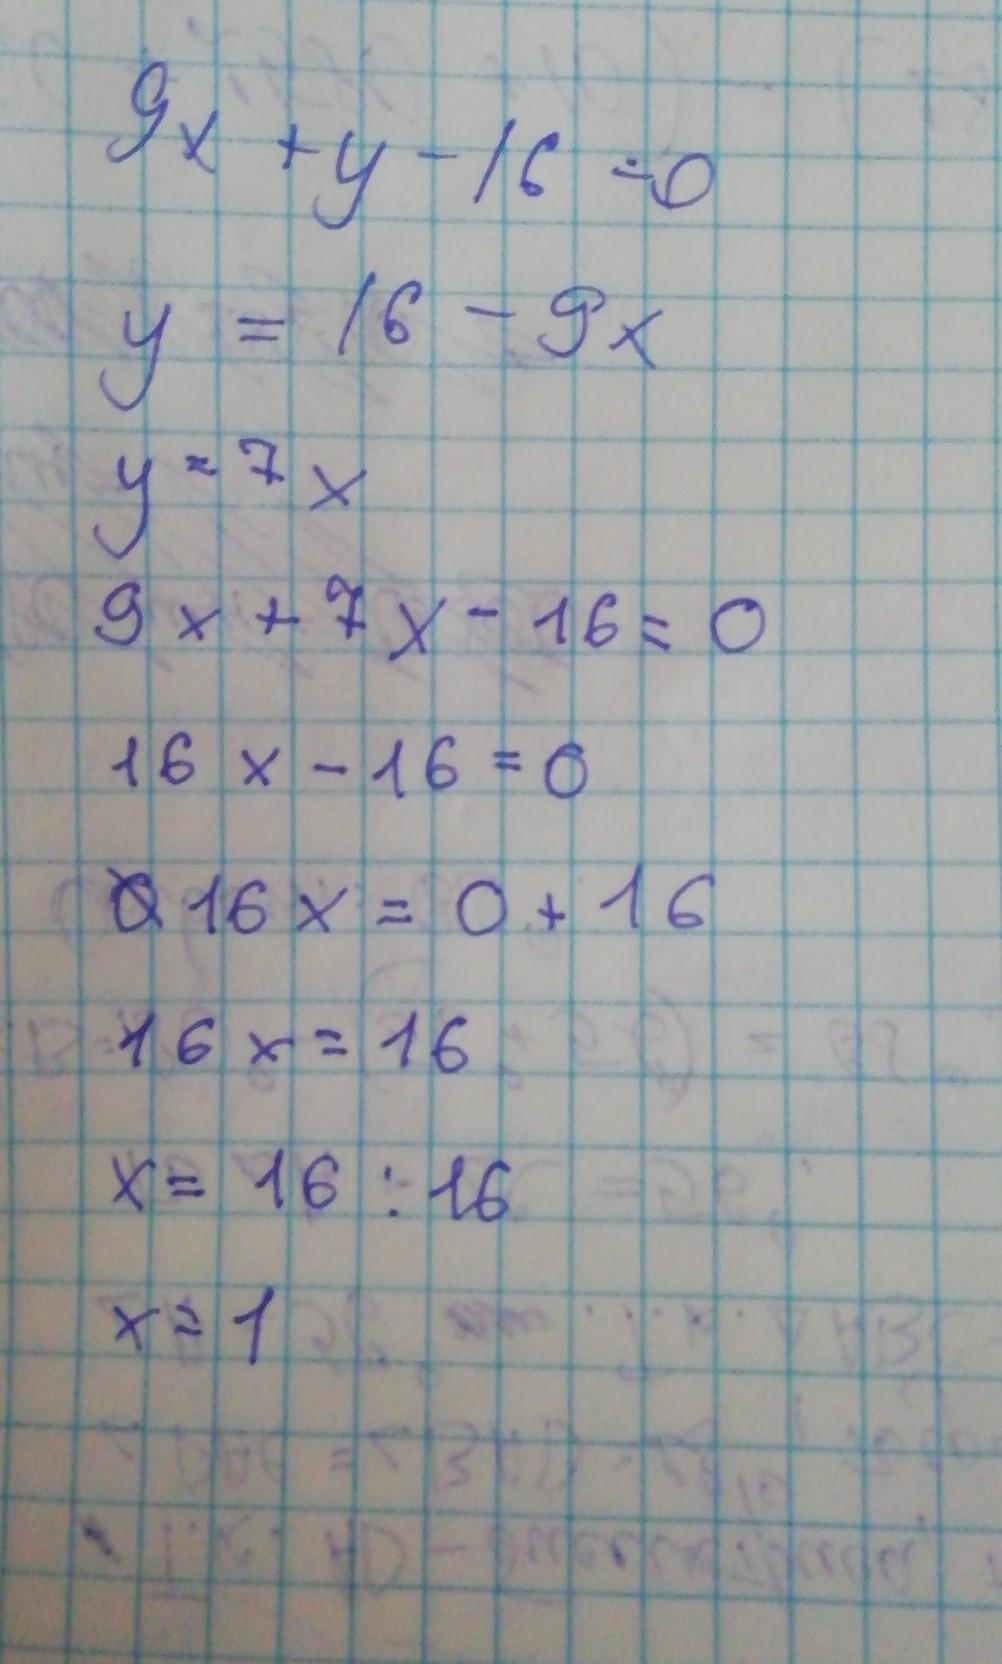 9x + y - 16 = 0
y = 16 - 9x
y = 7x
9x + 7x - 16 = 0
16x - 16 = 0
16x = 0 + 16
16x = 16
x = 16 : 16
x = 1